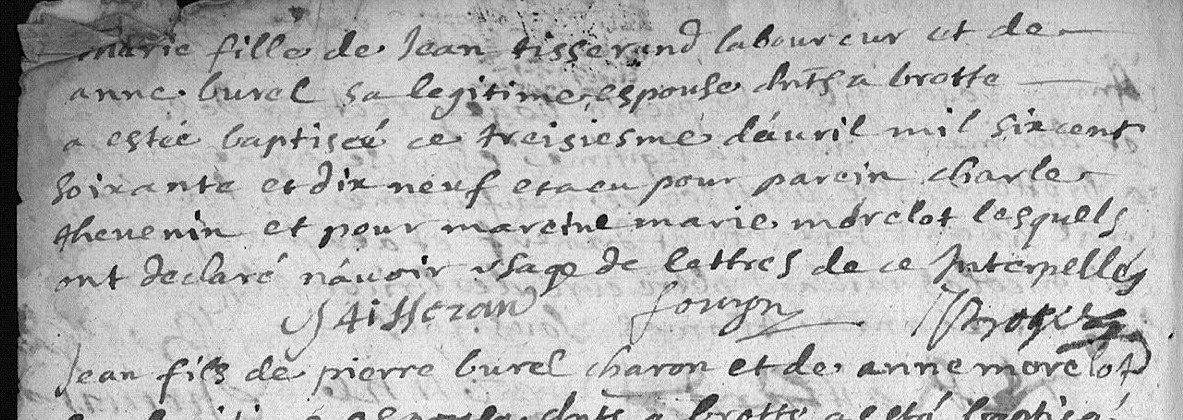 marie fille de Jean tisserand laboureur et de
anne burel sa legitime espouse dnts a brotte
a estéé baptiseé ce treisiesme dáuril mil sixcent
soixante et dix neuf et a eu pour parein charle
thevenin et pour mareine marie morelot lesquels
ont declaré náuoir usage de lettres de ce Interpellés
J tisseran
Jean fils de pierre burel charon et de anne morelot
espouse dnts a brotte a esté baptisé